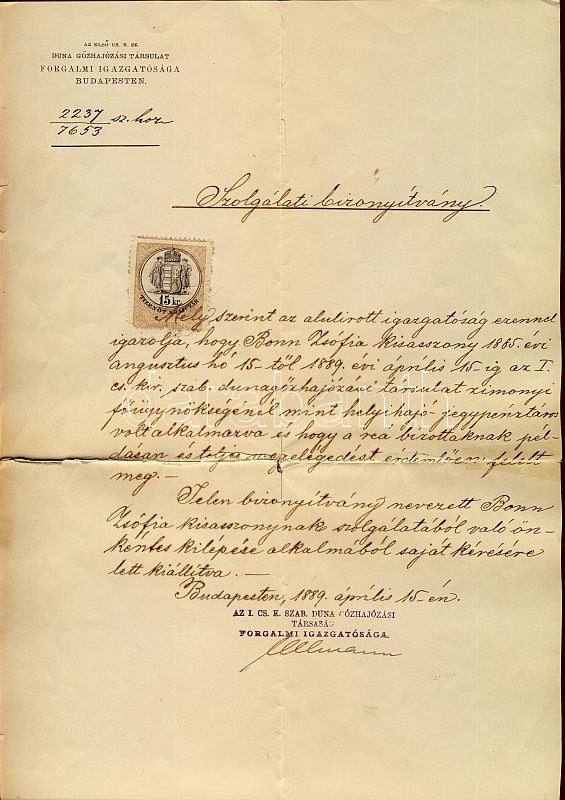 AZ ELSŐ CS. K. SZ.
DUNA GŐZHAJÓZÁSI TÁRSULAT
FORGALMI IGAZGATÓSÁGA
BUDAPESTEN.
2237
7653 sz. hoz
Szolgálati bizonyítvány
15 kr.
TIZENÖT KRAJCZÁR
Mely szerint az alulirott igazgatóság ezennel
igazolja, hogy Bonn Zsófia kisasszony 1885. évi
augusztus hó 15-től 1889. évi április 15-ig az I.
cs. kir. szab. dunagőzhajózási társulat zimonyi
főügynökségénél mint helyihajó-jegypénztáros
volt alkalmazva és hogy a reá bizottaknak pél-
dásan és teljes megelégedést érdemlően felelt
meg. —
Jelen bizonyítvány nevezett Bonn
Zsófia kisasszonynak szolgálatából való ön-
kéntes kilépése alkalmából saját kérésére
lett kiállítva. —
Budapesten, 1889. április 15-én.
AZ I. CS. K. SZAB. DUNA GŐZHAJÓZÁSI
TÁRSASÁG
FORGALMI IGAZGATÓSÁGA.
Ullmann
darabanth